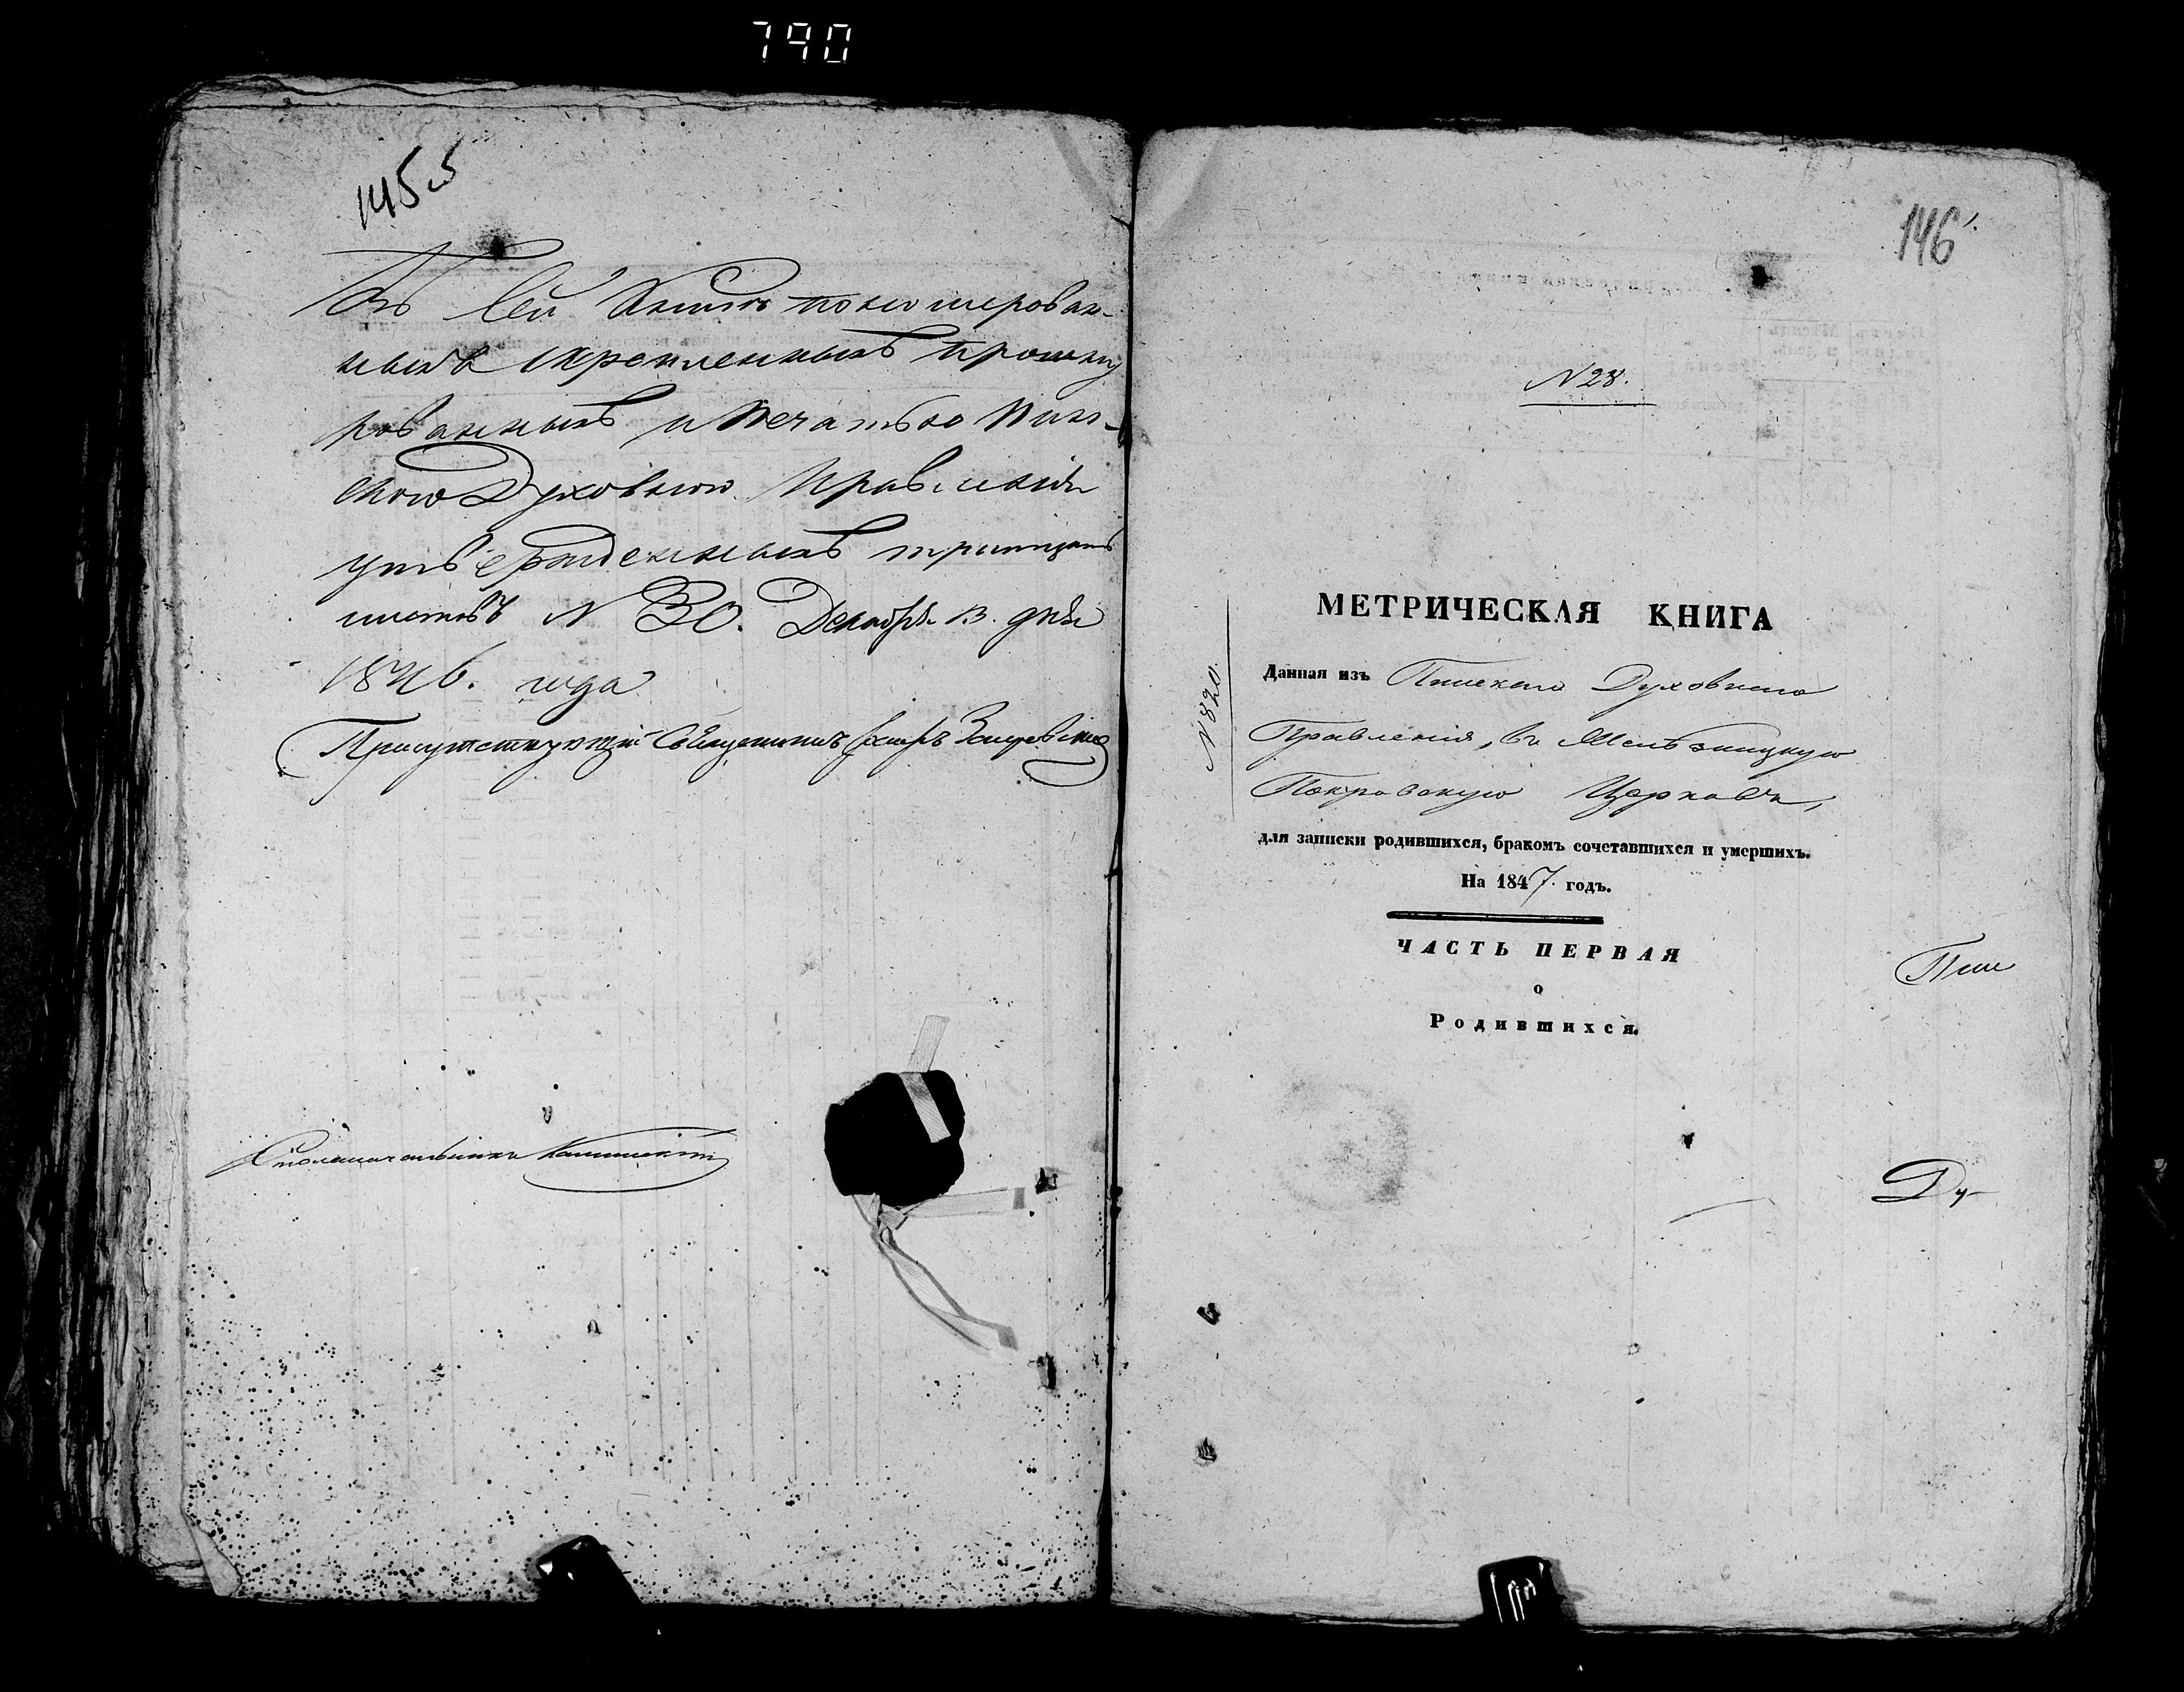 790
145 об
Въ сей Книгѣ пономерован-
ныхъ скрепленныхъ прошну
рованныхъ и печатью Пин-
скаго Духовнаго Правленія
утвержденныхъ тритцать
листовъ N 30. Декабря 13. дня
1846. года
Присутствующій Священникъ
Столоначальникъ
146
N 28.
МЕТРИЧЕСКАЯ КНИГА
N 820.
Данная изъ Пинскаго Духовнаго
Правленія, въ
Покровскую Церковь,
для записки родившихся, бракомъ сочетавшихся и умершихъ.
На 1847. годъ.
ЧАСТЬ ПЕРВАЯ
о
Родившихся.
Пин
Ду-